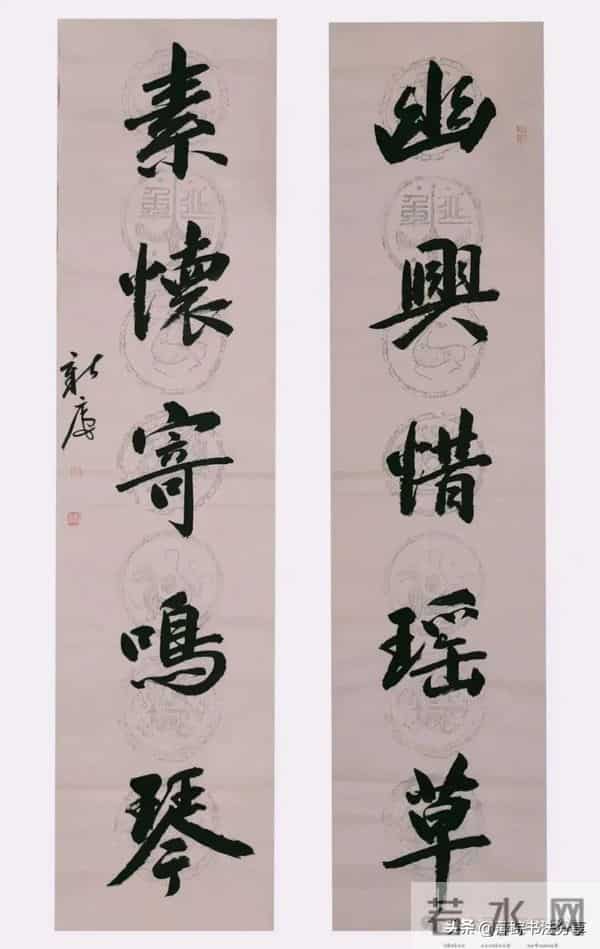 幽興惜瑶草
素懷寄鳴琴
若水网
头条 书法分享